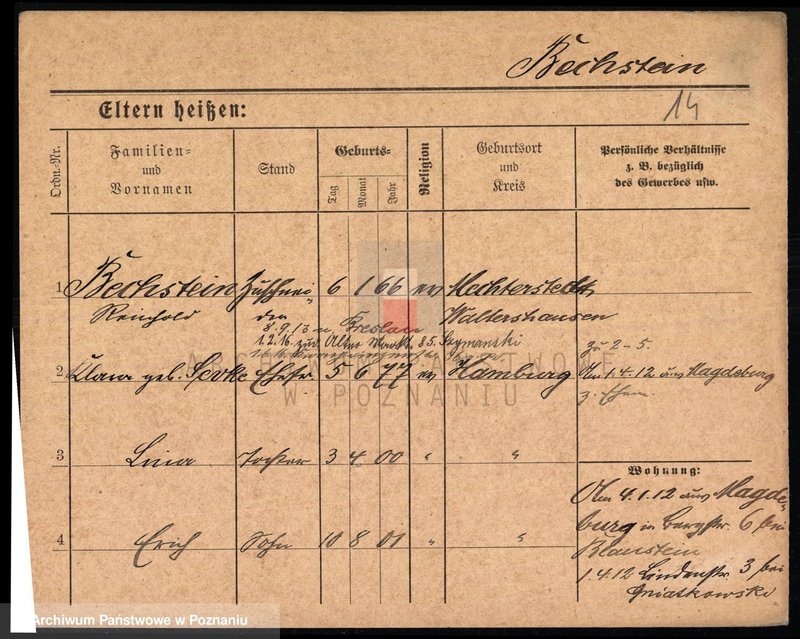 Bechstein
14
Eltern heißen:
Ordn.-Nr.
Familien- und Vornamen
Stand
Geburts-
Tag
Monat
Jahr
Religion
Geburtsort und Kreis
Persönliche Verhältnisse z. B. bezüglich des Gewerbes usw.
1 Bechstein Zuschnei- 6 1 66 ev Mechterstedt
Reinhold der Waltershausen
8.9.13 n. Breslau
1.2.16 zur. Alter Markt 85. Szymanski
zu 2-5.
2 Klara geb. Ehefr. 5 6 77 ev Hamburg
Am 1.4.12 aus Magdeburg
z. Ehem.
3 Lina Tochter 3 4 00 " "
Wohnung:
Am 4.1.12 aus Magde-
burg n. Bergstr. 6 bei
Blaustein
4 Erich Sohn 10 8 01 " "
1.4.12 Lindenstr. 3 bei
Gniatkowski
ARCHIWUM PAŃSTWOWE
W POZNANIU
Archiwum Państwowe w Poznaniu